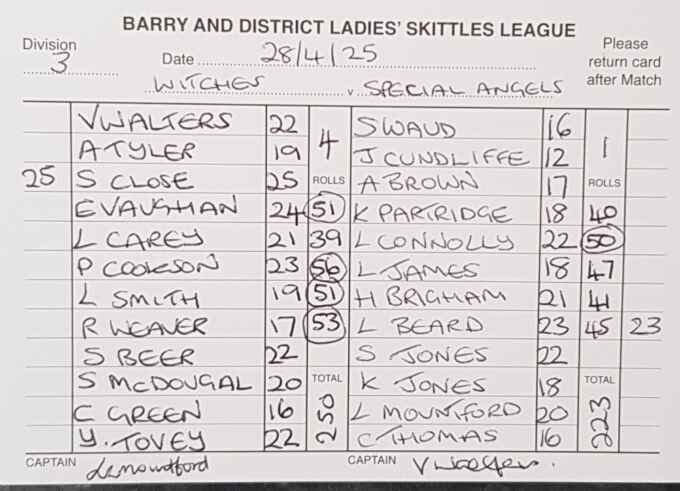 BARRY AND DISTRICT LADIES' SKITTLES LEAGUE
Division 3 Date 28/4/25 Please return card after Match
WITCHES v SPECIAL ANGELS
V WALTERS 22 4 S WAUD 16 1
A TYLER 19 J CUNDLIFFE 12
25 S CLOSE 25 ROLLS A BROWN 17 ROLLS
E VAUGHAN 24 51 K PARTRIDGE 18 40
L CAREY 21 39 L CONNOLLY 22 50
P COOKSON 23 56 L JAMES 18 47
L SMITH 19 51 H BRIGHAM 21 41
R WEAVER 17 53 L BEARD 23 45 23
S BEER 22 S JONES 22
S McDOUGAL 20 TOTAL K JONES 18 TOTAL
C GREEN 16 250 L MOUNTFORD 20 223
Y. TOVEY 22 C THOMAS 16
CAPTAIN L Mountford CAPTAIN V Walters.